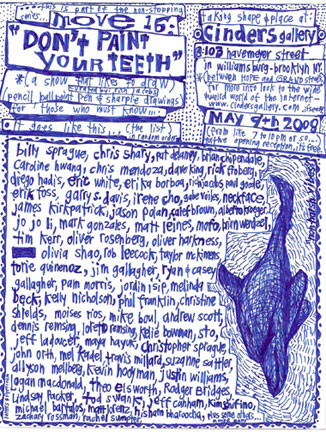 ...this is part of the non-stopping
series...
move 15:
"DON'T PAINT
YOUR TEETH"
*(a show that likes to draw)
curated by rich jacobs
pencil, ballpoint pen & sharpie drawings
for those who must know...
it goes like this... (the list)
taking shape & place at:
Cinders gallery
103 havemeyer street
in williamsburg - brooklyn NY.
(between HOPE and GRAND streets)
for more info look to the wide
world of the internet
www.cindersgallery.com
MAY 9th 2008
(from like 7 to 10pm or so)
the opening reception, its free.
billy sprague, chris shary, pat deaney, brian chippendale,
caroline hwang, chris mendoza, dave king, rick froberg,
diego hadis, eric white, erika borboa, rich jacobs, paul goode,
erik foss, garry s. davis, irene cho, gabe villes, neckface,
james kirkpatrick, jason polan, calef brown, alberto kroeger,
jo jo li, mark gonzales, matt leines, mofo, brion werdzel,
tim kerr, oliver rosenberg, oliver harkness,
olivia shao, rob leecock, taylor mckimens,
torie quinonez, jim gallagher, ryan & casey,
gallagher, pam morris, jordin isip, melinda
beck, kelly nicholson, phil franklin, christine
shields, moises rios, mike boul, andrew scott,
dennis remsing, loreto remsing, kelie bowman, sto,
jeff ladouceur, maya hayuk, christopher sprague,
john orth, mel kadel, travis millard, suzanne sattler,
allyson mellberg, kevin hooyman, justin williams,
ogan macdonald, theo elsworth, Rodger Bridges,
Lindsay Packer, tod swank, jeff canham,
michael bartalos, matt lorenz, hisham bharoocha, plus some others.
zachary rossman, rachel sumpter,